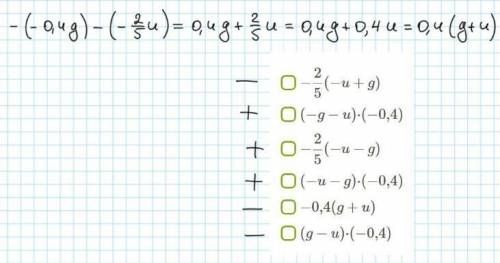 -(-0,4g)-(-2/5u)=0,4g+2/5u=0,4g+0,4u=0,4(g+u)
− -2/5(-u+g)
+ (-g-u)·(-0,4)
+ -2/5(-u-g)
+ (-u-g)·(-0,4)
− -0,4(g+u)
− (g-u)·(-0,4)